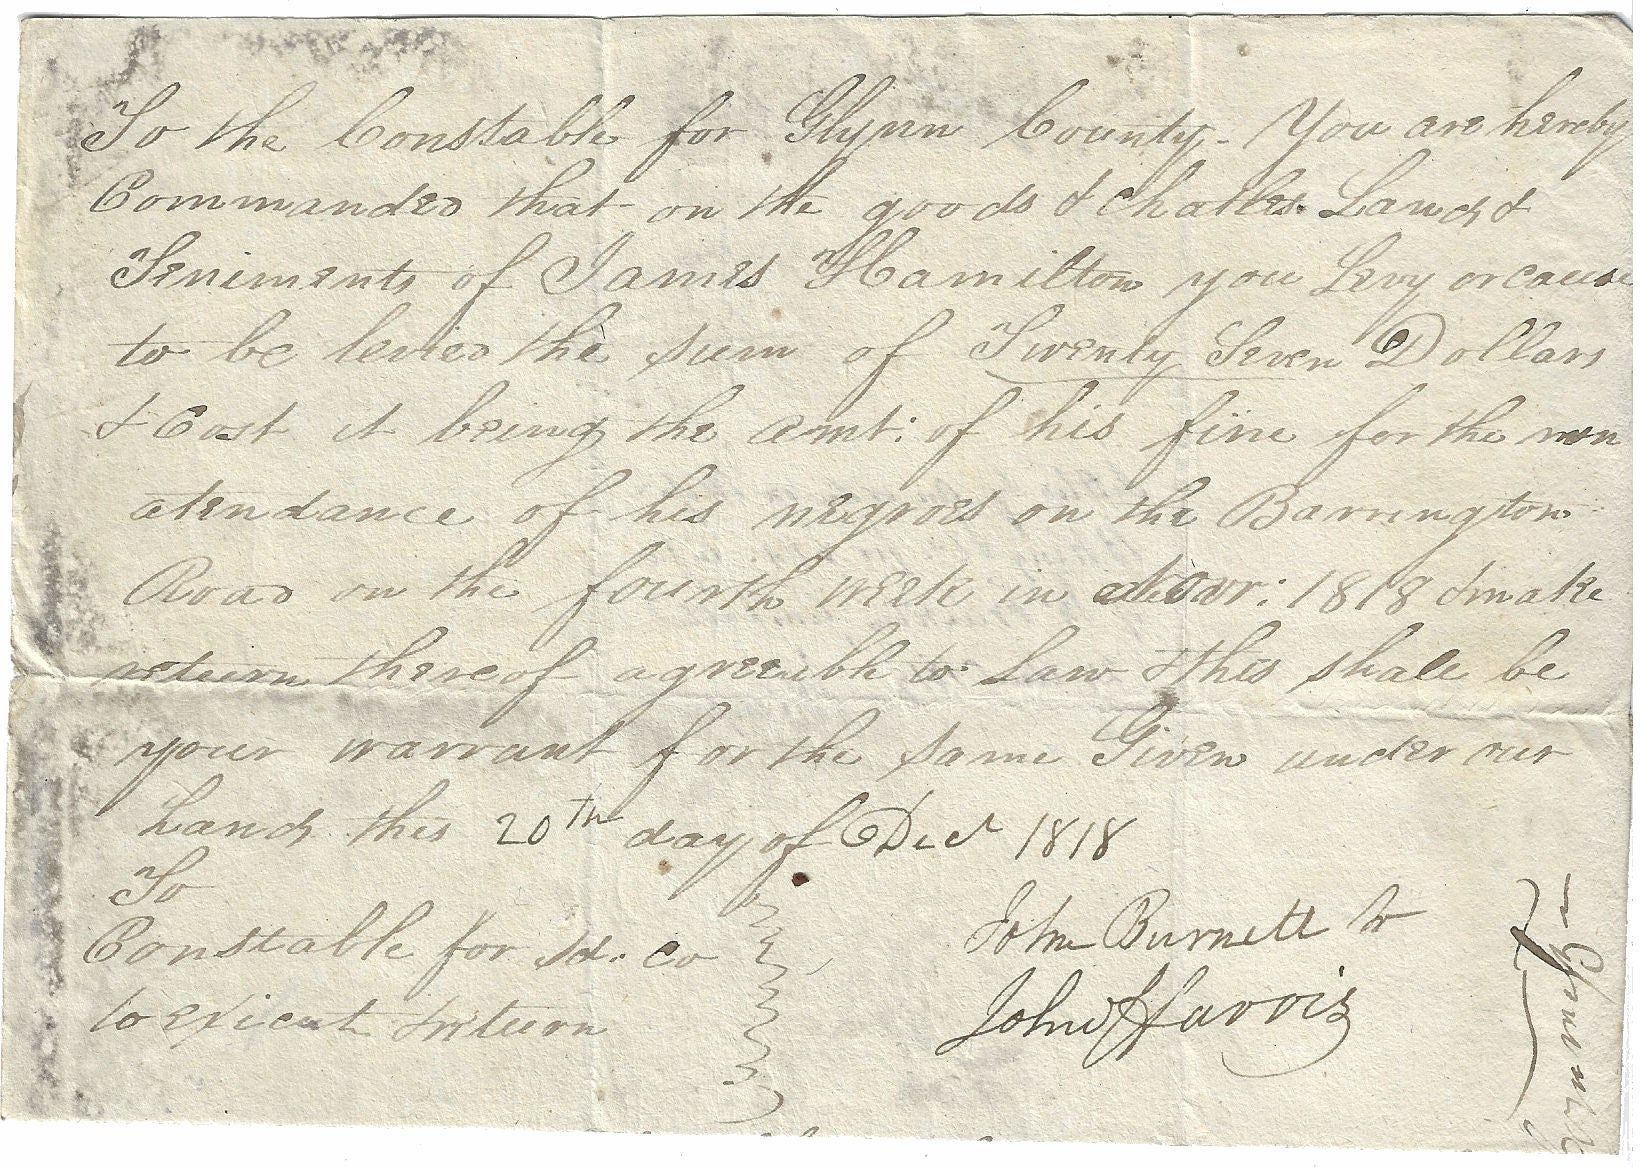 To the Constable for Glynn County - You are hereby
Commanded that on the goods & chatles. Lands &
Teniments of James Hamilton you Levy or cause
to be levied the sum of Twenty Seven Dollars
& Cost it being the amt: of his fine for the non
atendance of his negroes on the Barrington
Road on the fourth week in 1818 & make
return thereof agreeable to Law & this shall be
your warrant for the same Given under our
hands this 20th day of Decr 1818
To
Constable for sd. co
to exicut & return
John Burnett Jr
John Harris
Glynn